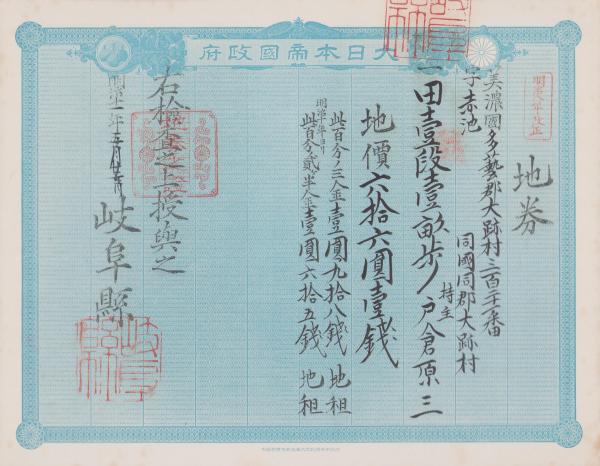 大日本帝國政府
明治年改正
地券
美濃國多藝郡大跡村三百二十二番
字赤池
同國同郡大跡村
一田壹段壹畝歩
持主
戸倉原三
地價六拾六圓壹錢
此百分ノ三金壹圓九拾八錢 地租
明治十年ヨリ
此百分ノ貳半金壹圓六拾五錢 地租
右検査之上授與之
岐阜縣